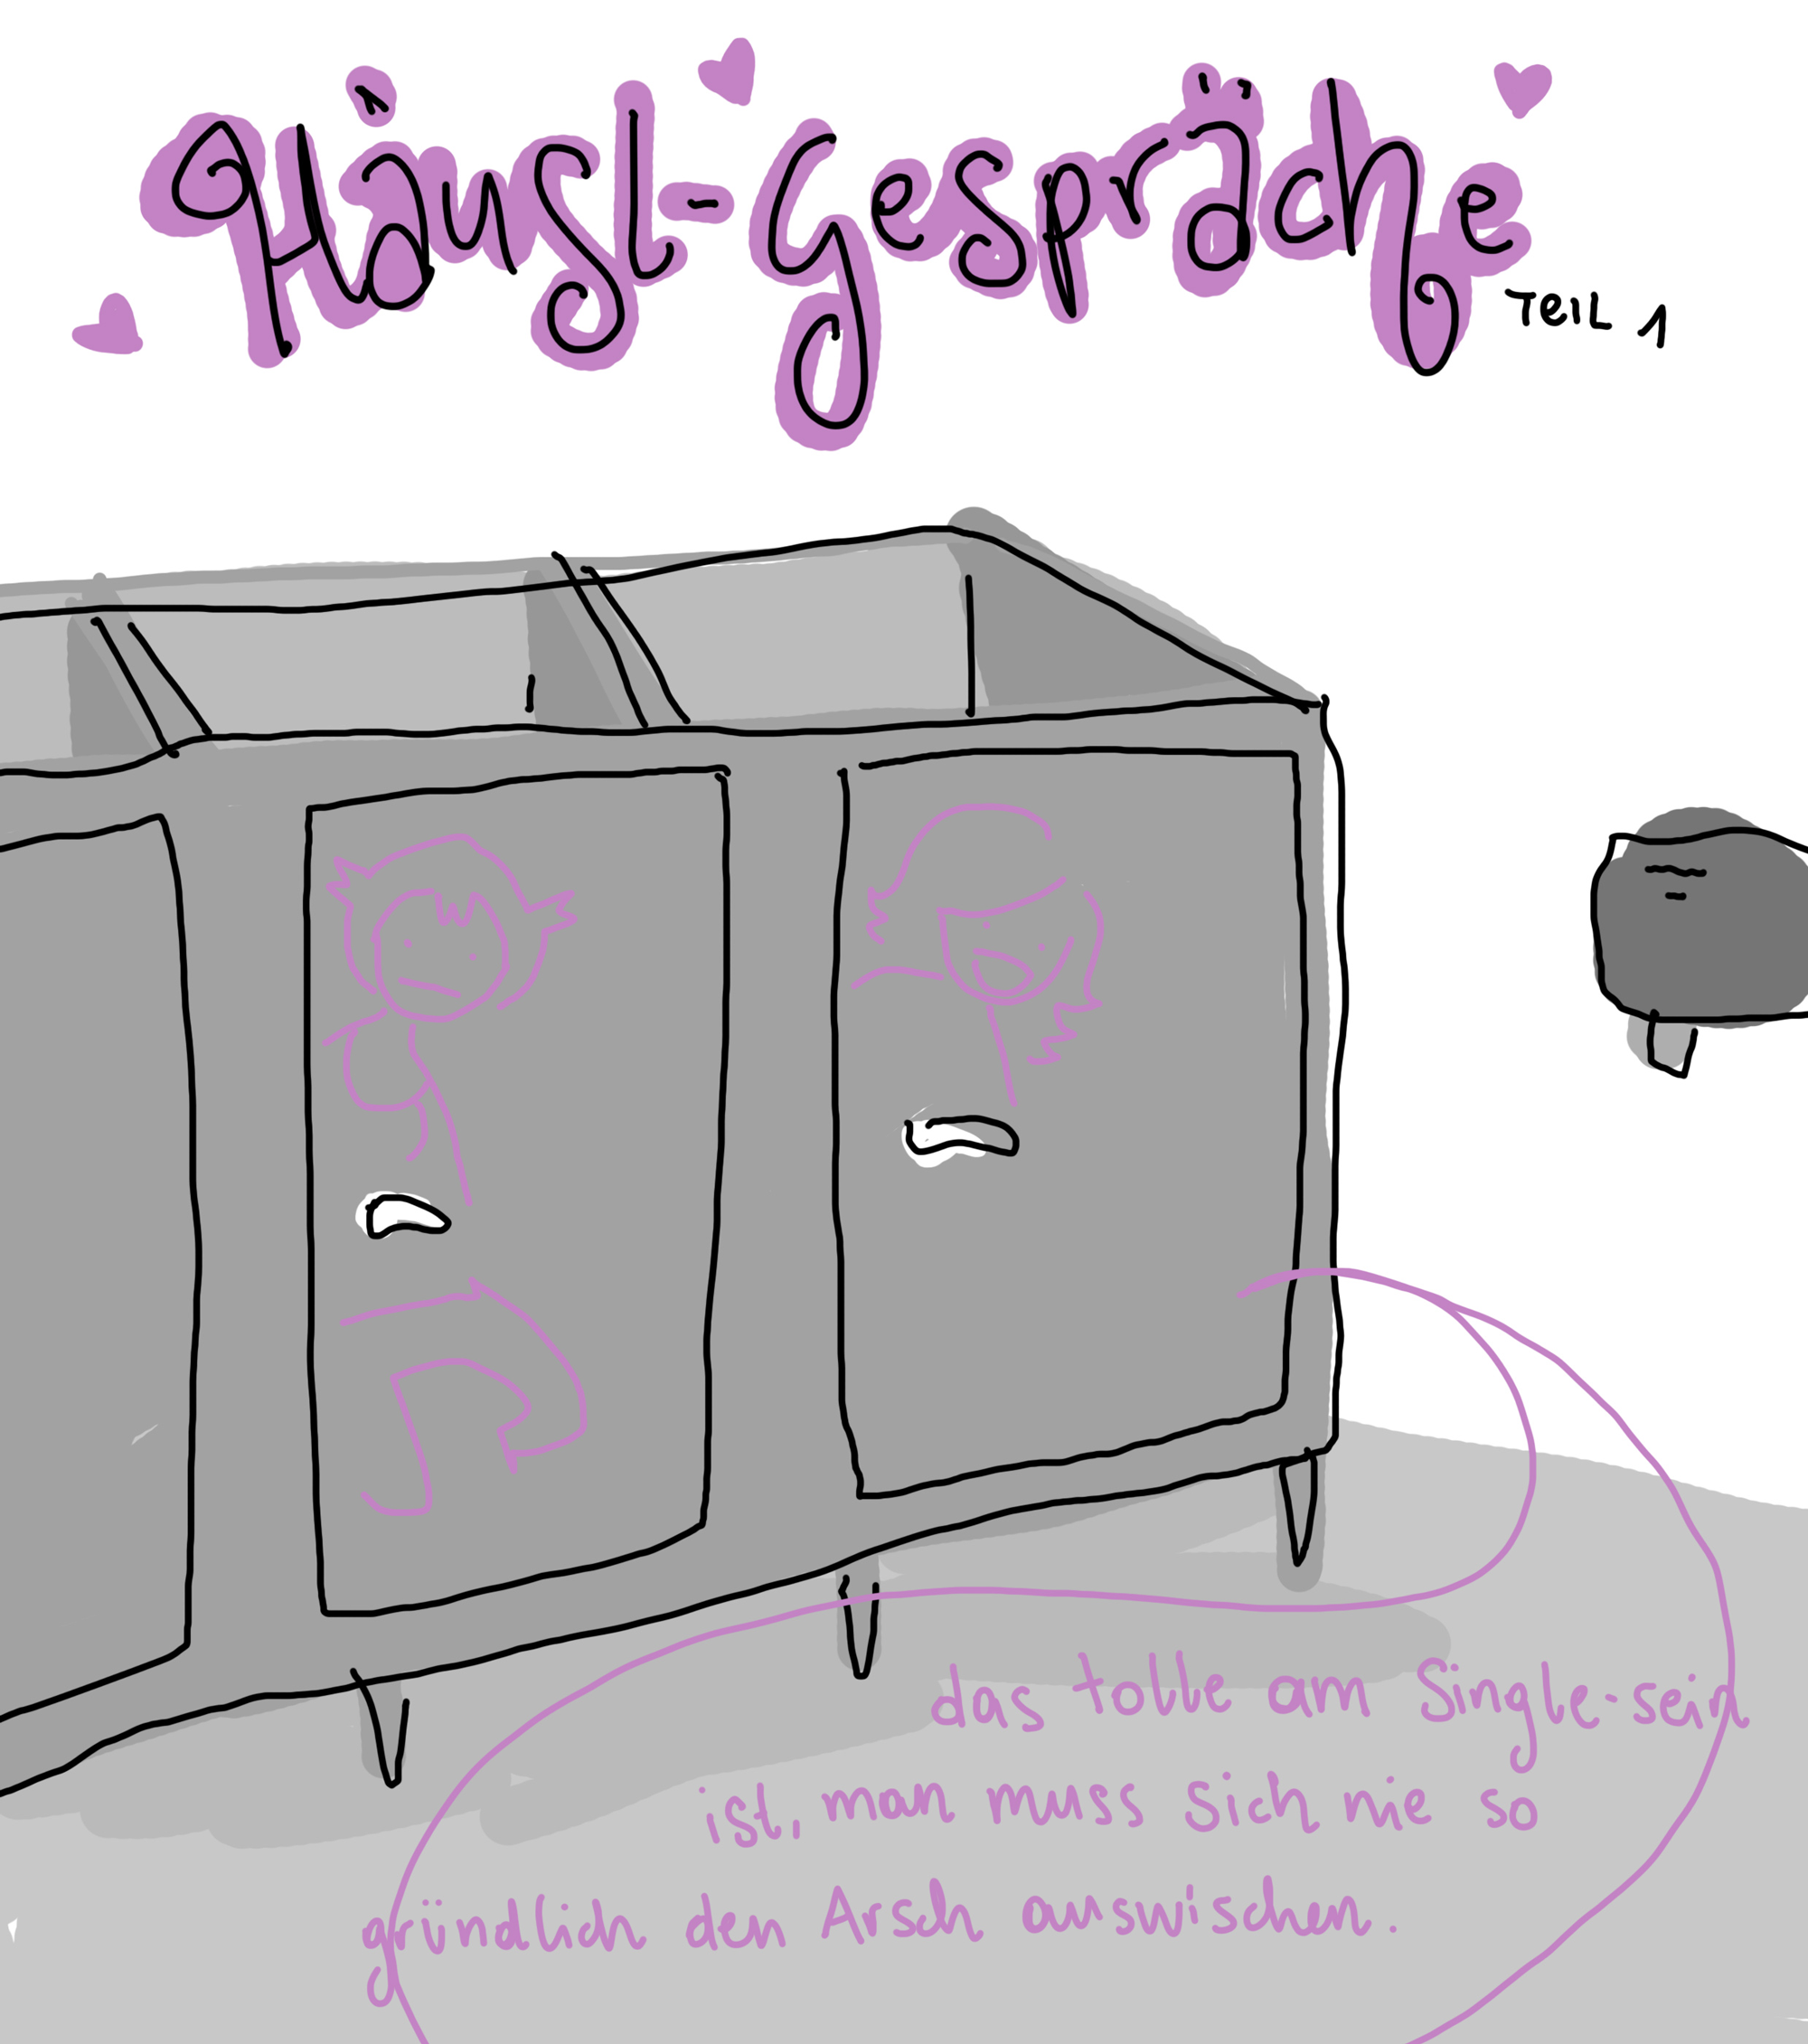 Häusl-gespräche
Teil 1
das tolle am Single-sein
ist, man muss sich nie so
gründlich den Arsch auswischen.